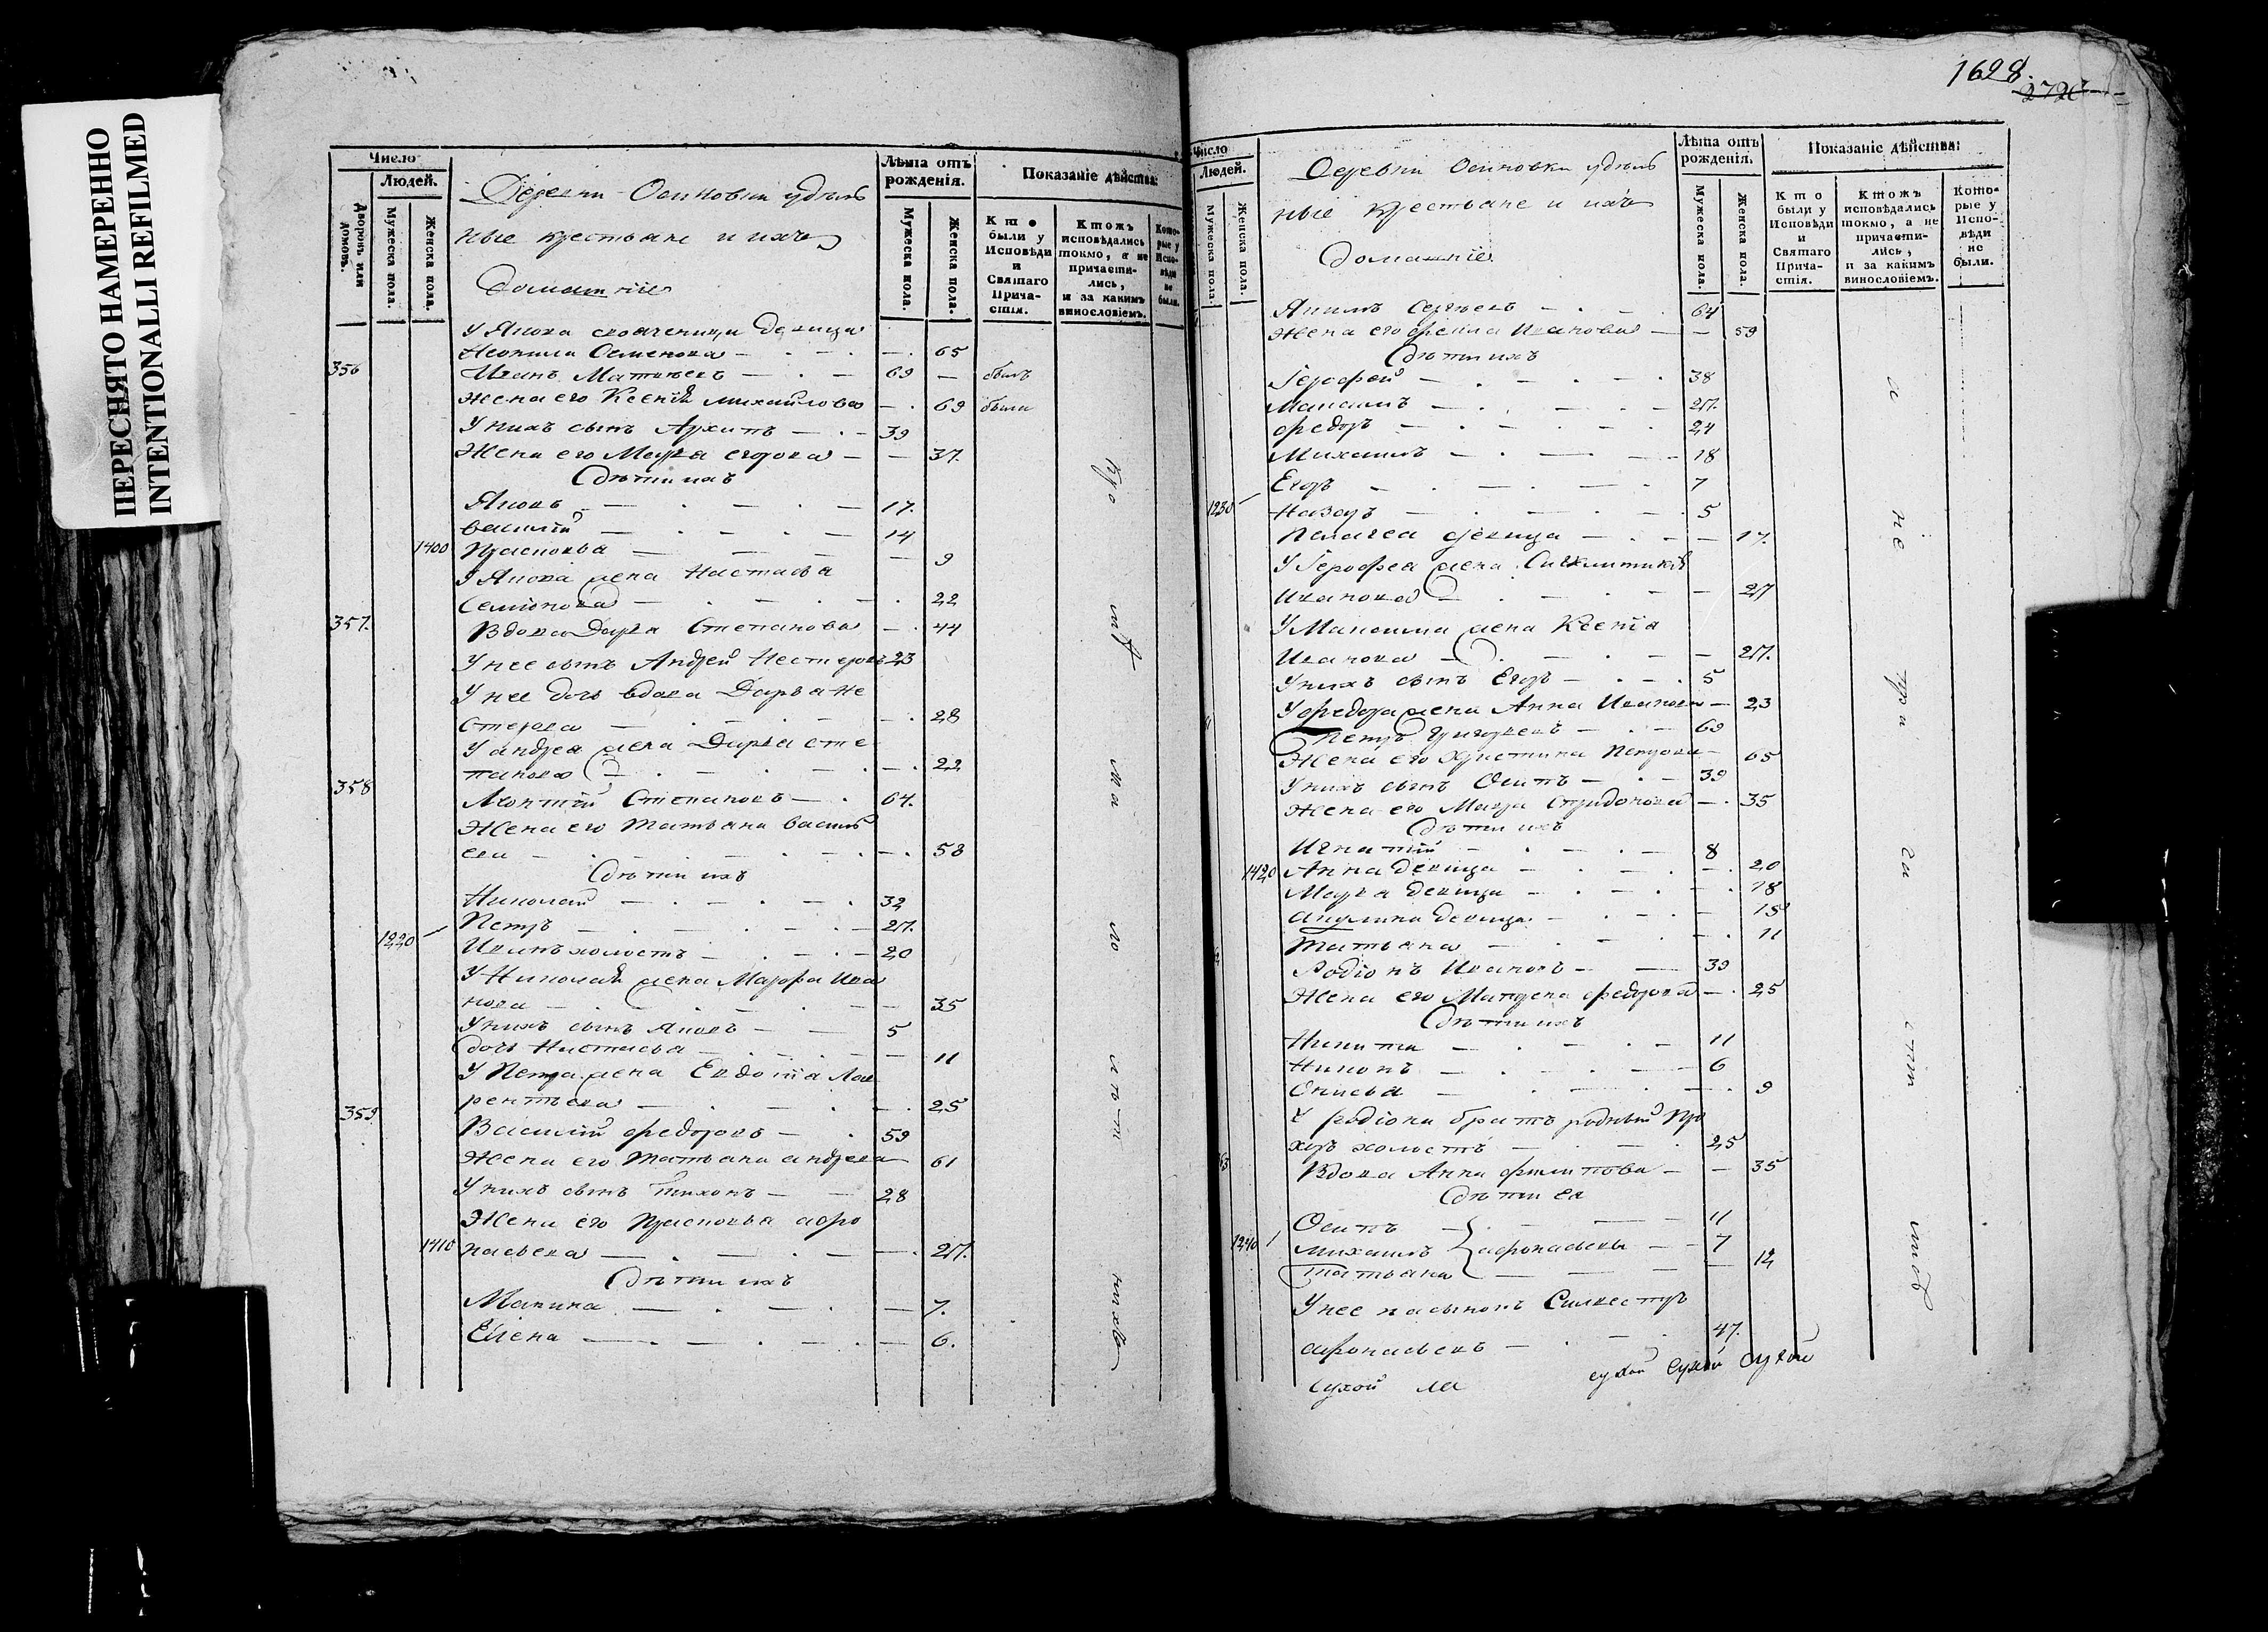 ПЕРЕСНЯТО НАМЕРЕННО
INTENTIONALLI REFILMED
Число
Людей.
Дворовъ или домовъ.
Мужеска пола.
Женска пола.
Деревни Осиновки удѣль
ные крестьяне и ихъ
домашніе
Лѣта отъ рожденія.
Мужеска пола.
Женска пола.
Показаніе дѣйства:
Кто были у Исповѣди и Святаго Прича- стія.
Ктожъ исповѣдались токмо, а не причасти- лись, и за какимъ винословіемъ.
Кото- рые у Испо- вѣди не были.
У Якова свояченица девица
Семенова — 65
356 Иванъ Матвѣевъ — 69 — былъ
Жена его Ксенія Михайлова — 69 была
У нихъ сынъ Архипъ — 39
Жена его Марѳа Егорова — 37.
Дѣти ихъ
Яковъ — 17.
Василій — 14
1400 Прасковья — 9
У Якова жена Настасья
Семіонова — 22
357. Вдова Дарья Степанова — 44
У нее сынъ Андрей Нестеровъ 23
У нее дочь вдова Дарья Не
стерова — 28
У Андрея жена Дарья Сте
панова — 22
358 Леонтій Степановъ — 64.
Жена его Татьяна Василь
ева — 58
Дѣти ихъ
Николай — 32
Петръ — 27.
1220 Иванъ холостъ — 20
У Николая жена Марфа Ива
нова — 35
У нихъ сынъ Яковъ — 5
дочь Настасья — 11
У Петра жена Евдокія Лав
рентьева — 25
359 Василій Федоровъ — 59
Жена его Татьяна Андреева — 61
У нихъ сынъ Тихонъ — 28
Жена его Прасковья Афо
1410 насьева — 27.
Дѣти ихъ
— 7.
Елена — 6.
1628.
2726
Число
Людей.
Мужеска пола.
Женска пола.
Деревни Осиновки удѣль
ные крестьяне и ихъ
домашніе
Лѣта отъ рожденія.
Мужеска пола.
Женска пола.
Показаніе дѣйства:
Кто были у Исповѣди и Святаго Прича- стія.
Ктожъ исповѣдались токмо, а не причасти- лись, и за какимъ винословіемъ.
Кото- рые у Испо- вѣди не были.
Якимъ Сергѣевъ — 64
Жена его Иванова — 59
Дѣти ихъ
Герофей — 38
Максимъ — 27.
Федоръ — 24
Михаилъ — 18
Егоръ — 7
1230 Назаръ — 5
Пелагея девица — 17.
У Герофея жена
Иванова — 27
У Максима жена Ксенія
Иванова — 27.
У нихъ сынъ Егоръ — 5
У Федора жена Анна Иванова — 23
Петръ Григорьевъ — 69
Жена его Христина Петрова — 65
У нихъ сынъ Осипъ — 39
Жена его Спиридонова — 35
Дѣти ихъ
Игнатій — 8
1420 Анна девица — 20
Марѳа девица — 18
Акулина девица — 15
Татьяна — 11
Родіонъ Ивановъ — 39
Жена его Матрена Федорова — 25
Дѣти ихъ
Никита — 11
Никонъ — 6
Онисья — 9
У Родіона братъ родный Про
хоръ холостъ — 25
Вдова Анна Филипова — 35
Дѣти ея
Осипъ — 11
1240 Михаилъ Афонасьевы — 7
Татьяна — 12
У нее пасынокъ Силвестръ
Афонасьевъ — 47.
Сухой
сухой сухой сухой